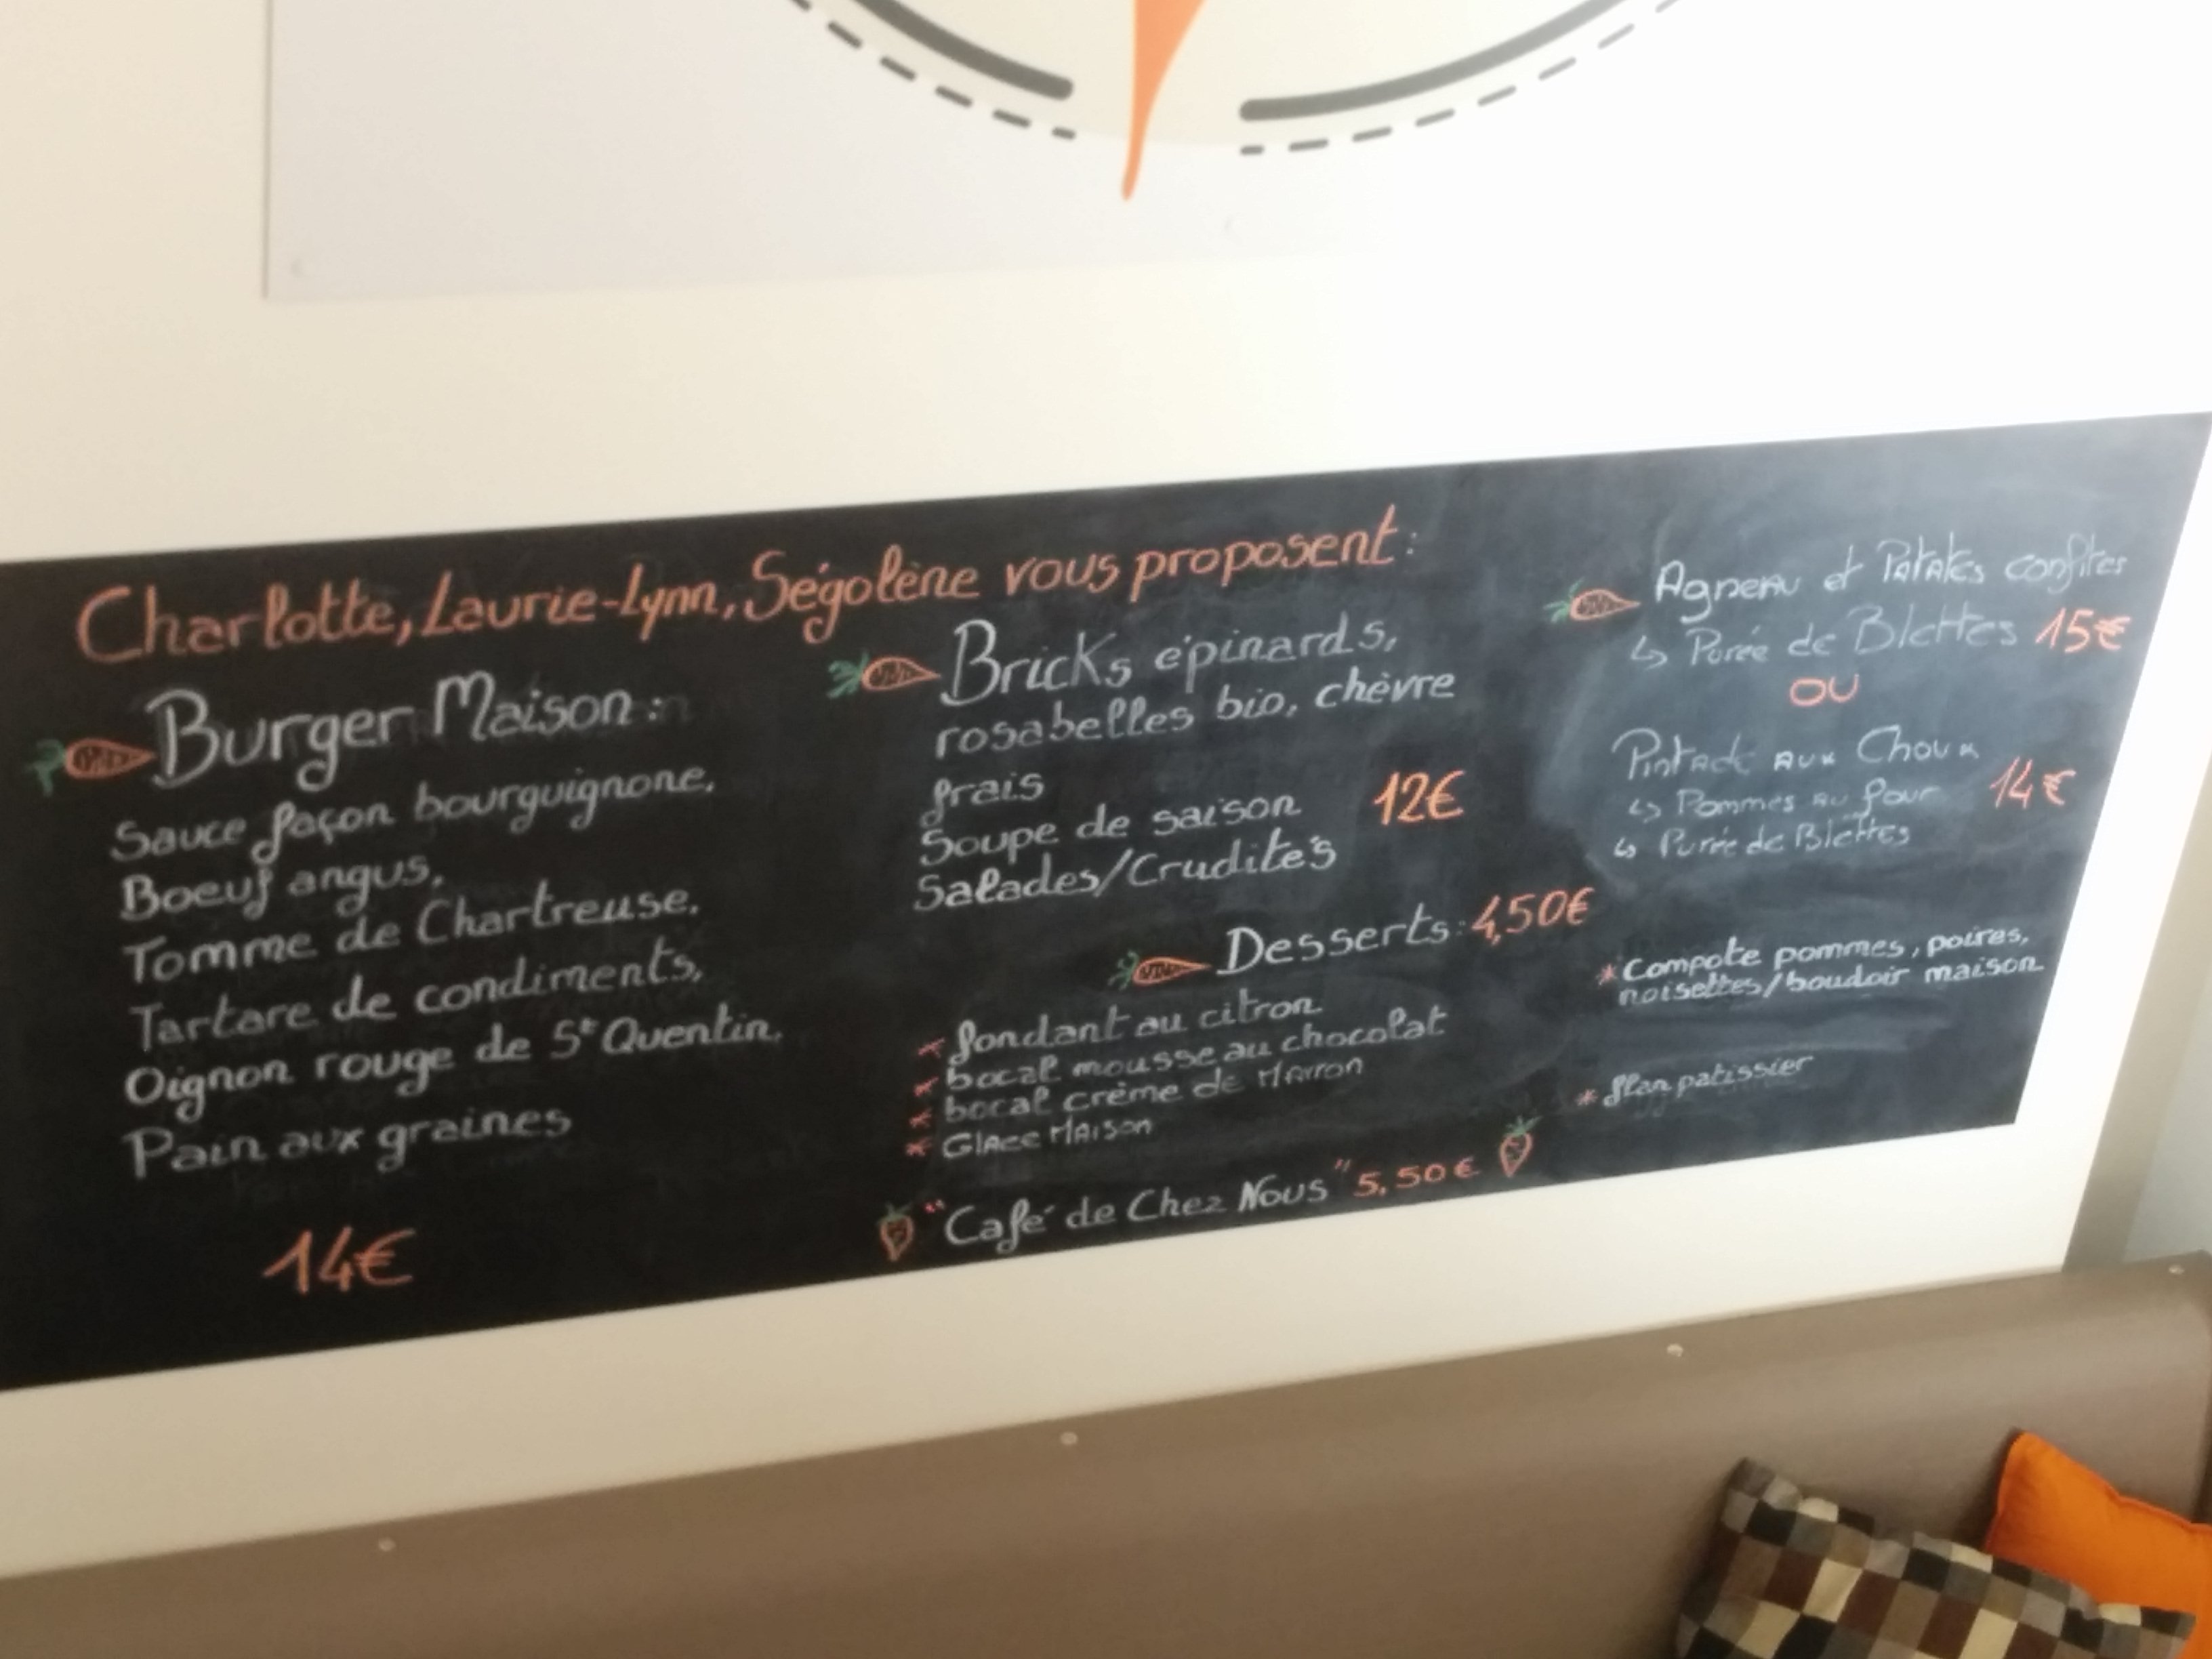 Charlotte, Laurie-Lynn, Ségolène vous proposent :
Burger Maison :
Sauce façon bourguignone,
Boeuf angus,
Tomme de Chartreuse,
Tartare de condiments,
Oignon rouge de St Quentin,
Pain aux graines
14€
Bricks épinards,
rosabelles bio, chèvre
frais
Soupe de saison 12€
Salades/Crudités
Desserts : 4,50€
* fondant au citron
* bocal mousse au chocolat
* bocal crème de Marron
* Glace Maison
"Café de Chez Nous" 5,50€
Agneau et Patates confites
↳ Purée de Blettes 15€
OU
Pintade aux Choux
↳ Pommes au four 14€
↳ Purée de Blettes
* Compote pommes, poires,
noisettes/boudoir maison
* flan patissier